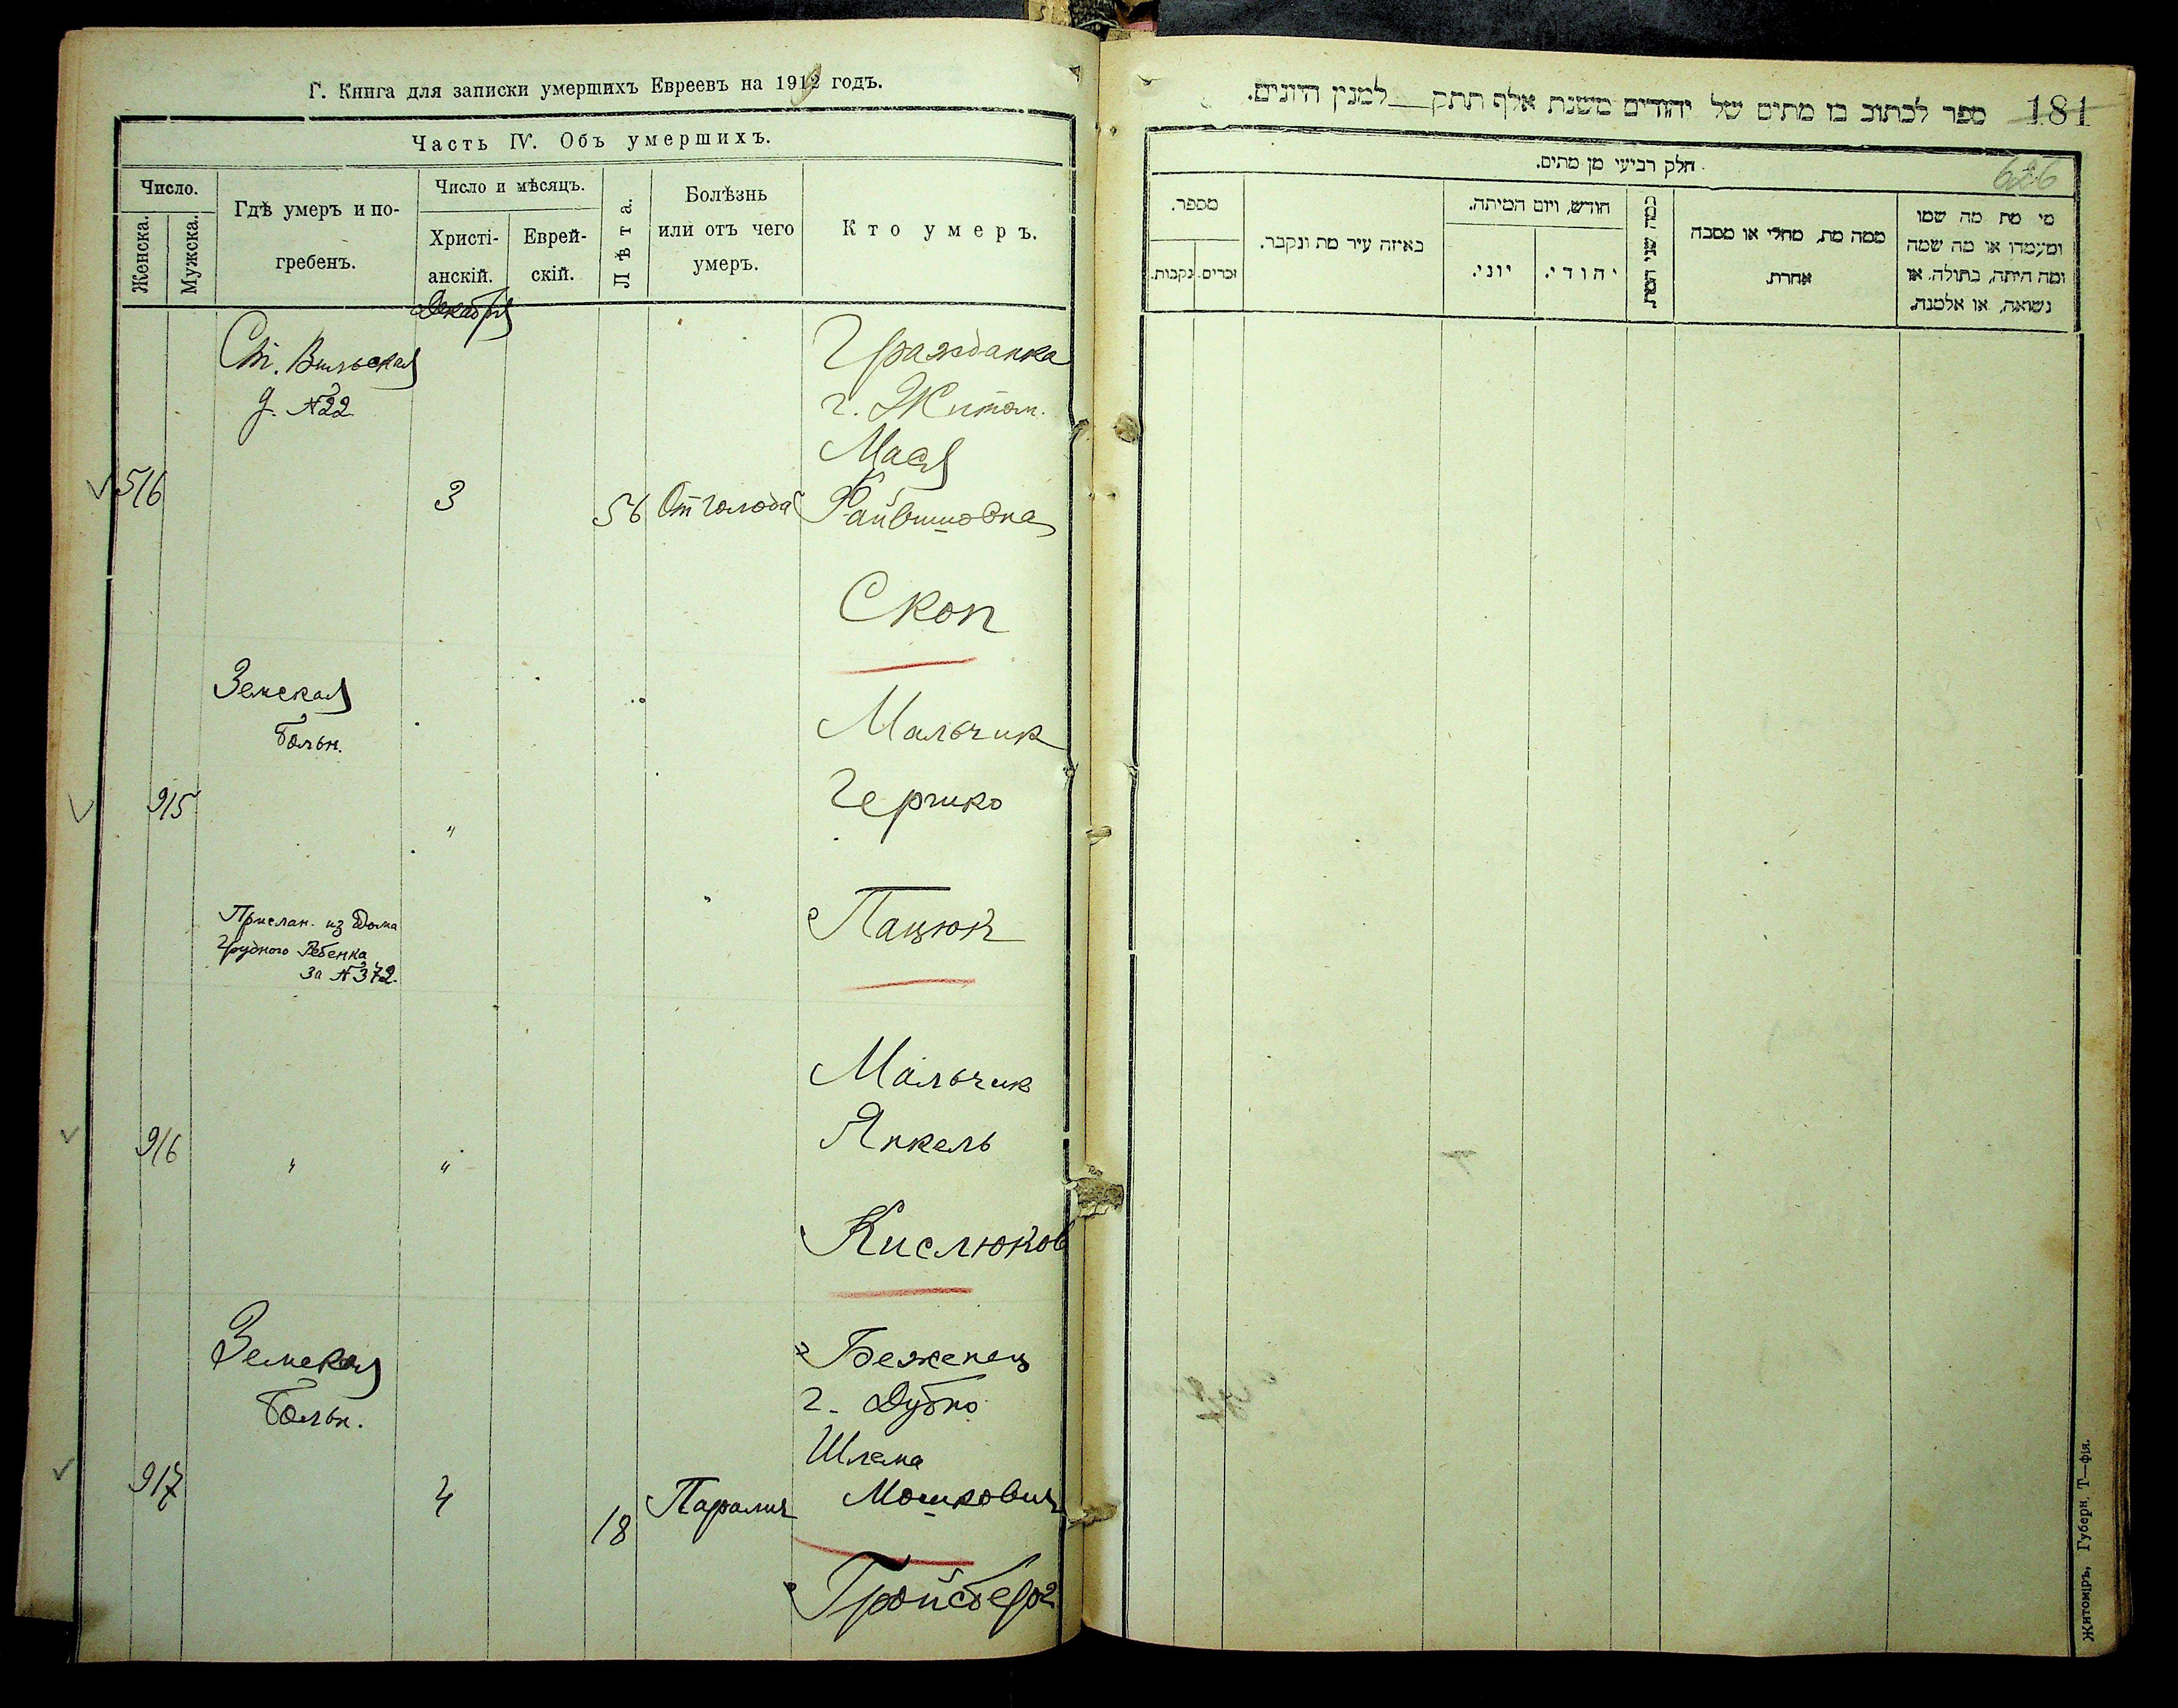 Г. Книга для записки умершихъ Евреевъ на 1919 годъ.
Часть IV. Объ умершихъ.
Число.
Женска.
Мужска.
Гдѣ умеръ и по-
гребенъ.
Число и мѣсяцъ.
Христі-
анскій.
Еврей-
скій.
Лѣта.
Болѣзнь
или отъ чего
умеръ.
Кто умеръ.
Декабря
Ст. Вильская
д. №22
516
3
56
От голода
Гражданка
г. Житом.
Мася
Файвишовна
Скоп
Земская
больн.
915
"
Прислан. из Дома
Грудного Ребенка
за №372.
Мальчик
Гершко
Пацюк
916
"
"
Мальчик
Янкель
Кислюков
Земская
больн.
917
4
18
Паралич
Беженец
г. Дубно
Шлема
Мошкович
Гройсберг
ספר לכתוב בו מתים של יהודים משנת אלף תתק__למנין היונים.
181
626
חלק רביעי מן מתים.
מי מת מה שמו
ומעמדו או מה שמה
ומה היתה, בתולה, או
נשואה, או אלמנה.
ממה מת, מחלי או מסבה
אחרת.
כמה שני המת
חודש, ויום המיתה.
יהודי.
יוני.
באיזה עיר מת ונקבר.
מספר.
זכרים.
נקבות.
Житоміръ, Губерн. Т—фія.